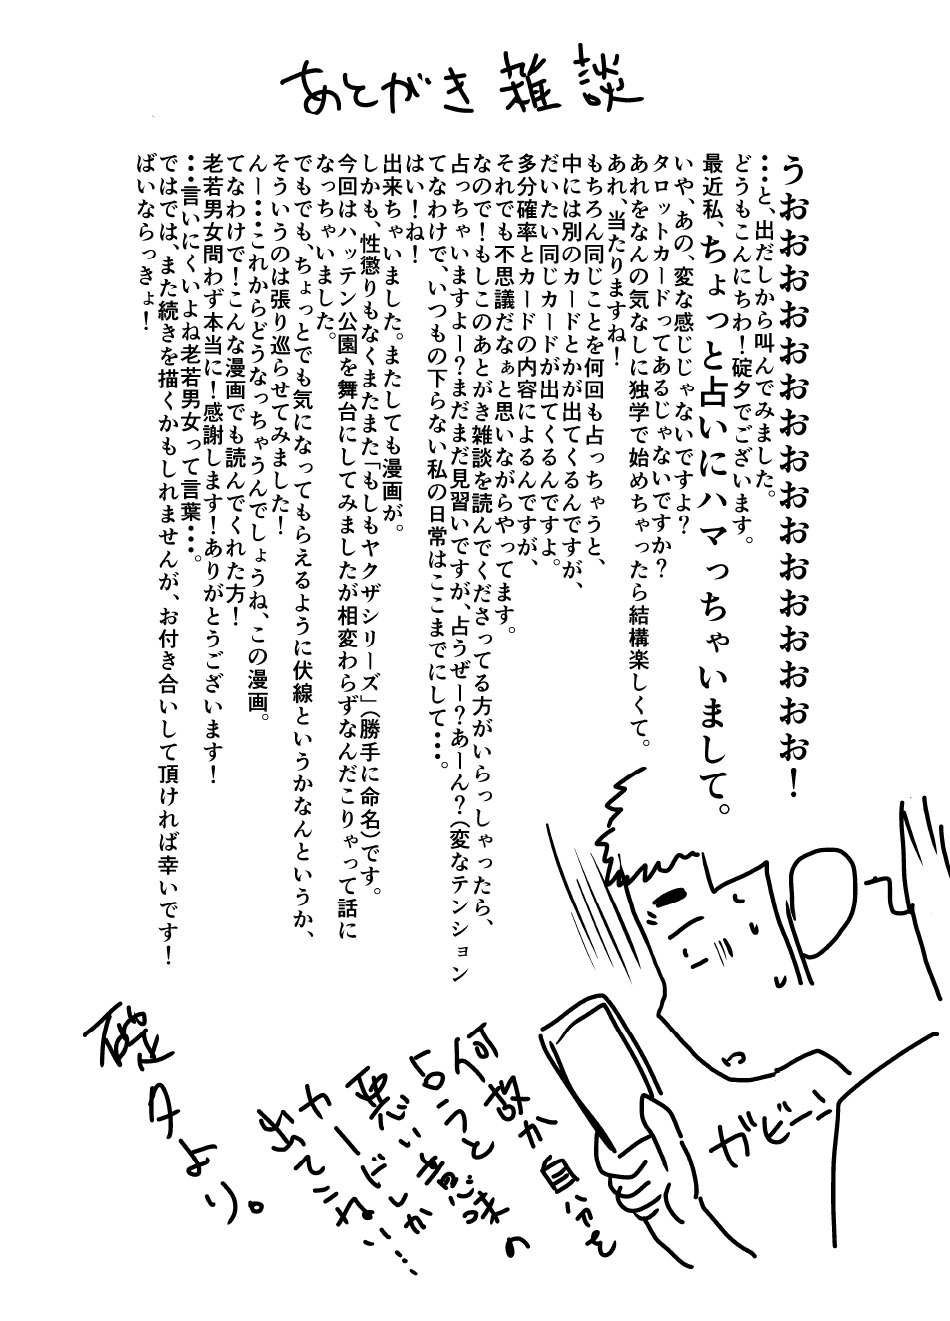 あとがき雑談
うおおおおおおおおおおおおおおおおお！
・・・と、出だしから叫んでみました。
どうもこんにちわ！碇夕でございます。
最近私、ちょっと占いにハマっちゃいまして。
いや、あの、変な感じじゃないですよ？
タロットカードってあるじゃないですか？
あれをなんの気なしに独学で始めちゃったら結構楽しくて。
あれ、当たりますね！
もちろん同じことを何回も占っちゃうと、
中には別のカードとかが出てくるんですが、
だいたい同じカードが出てくるんですよ。
多分確率とカードの内容によるんですが、
それでも不思議だなぁと思いながらやってます。
なので！もしこのあとがき雑談を読んでくださってる方がいらっしゃったら、
占っちゃいますよー？まだまだ見習いですが、占うぜー？あーん？（変なテンション
てなわけで、いつもの下らない私の日常はここまでにして・・・。
はい！ね！
出来ちゃいました。またしても漫画が。
しかも、性懲りもなくまたまた「もしもヤクザシリーズ」（勝手に命名）です。
今回はハッテン公園を舞台にしてみましたが相変わらずなんだこりゃって話に
なっちゃいました。
でもでも、ちょっとでも気になってもらえるように伏線というかなんというか、
そういうのは張り巡らせてみました！
んー・・・これからどうなっちゃうんでしょうね、この漫画。
てなわけで！こんな漫画でも読んでくれた方！
老若男女問わず本当に！感謝します！ありがとうございます！
・・・言いにくいよね老若男女って言葉・・・。
ではでは、また続きを描くかもしれませんが、お付き合いして頂ければ幸いです！
ばいならっきょ！
ガビーン
何故か自分を
占うと
悪い意味の
カードしか
出てこない…
碇夕より。